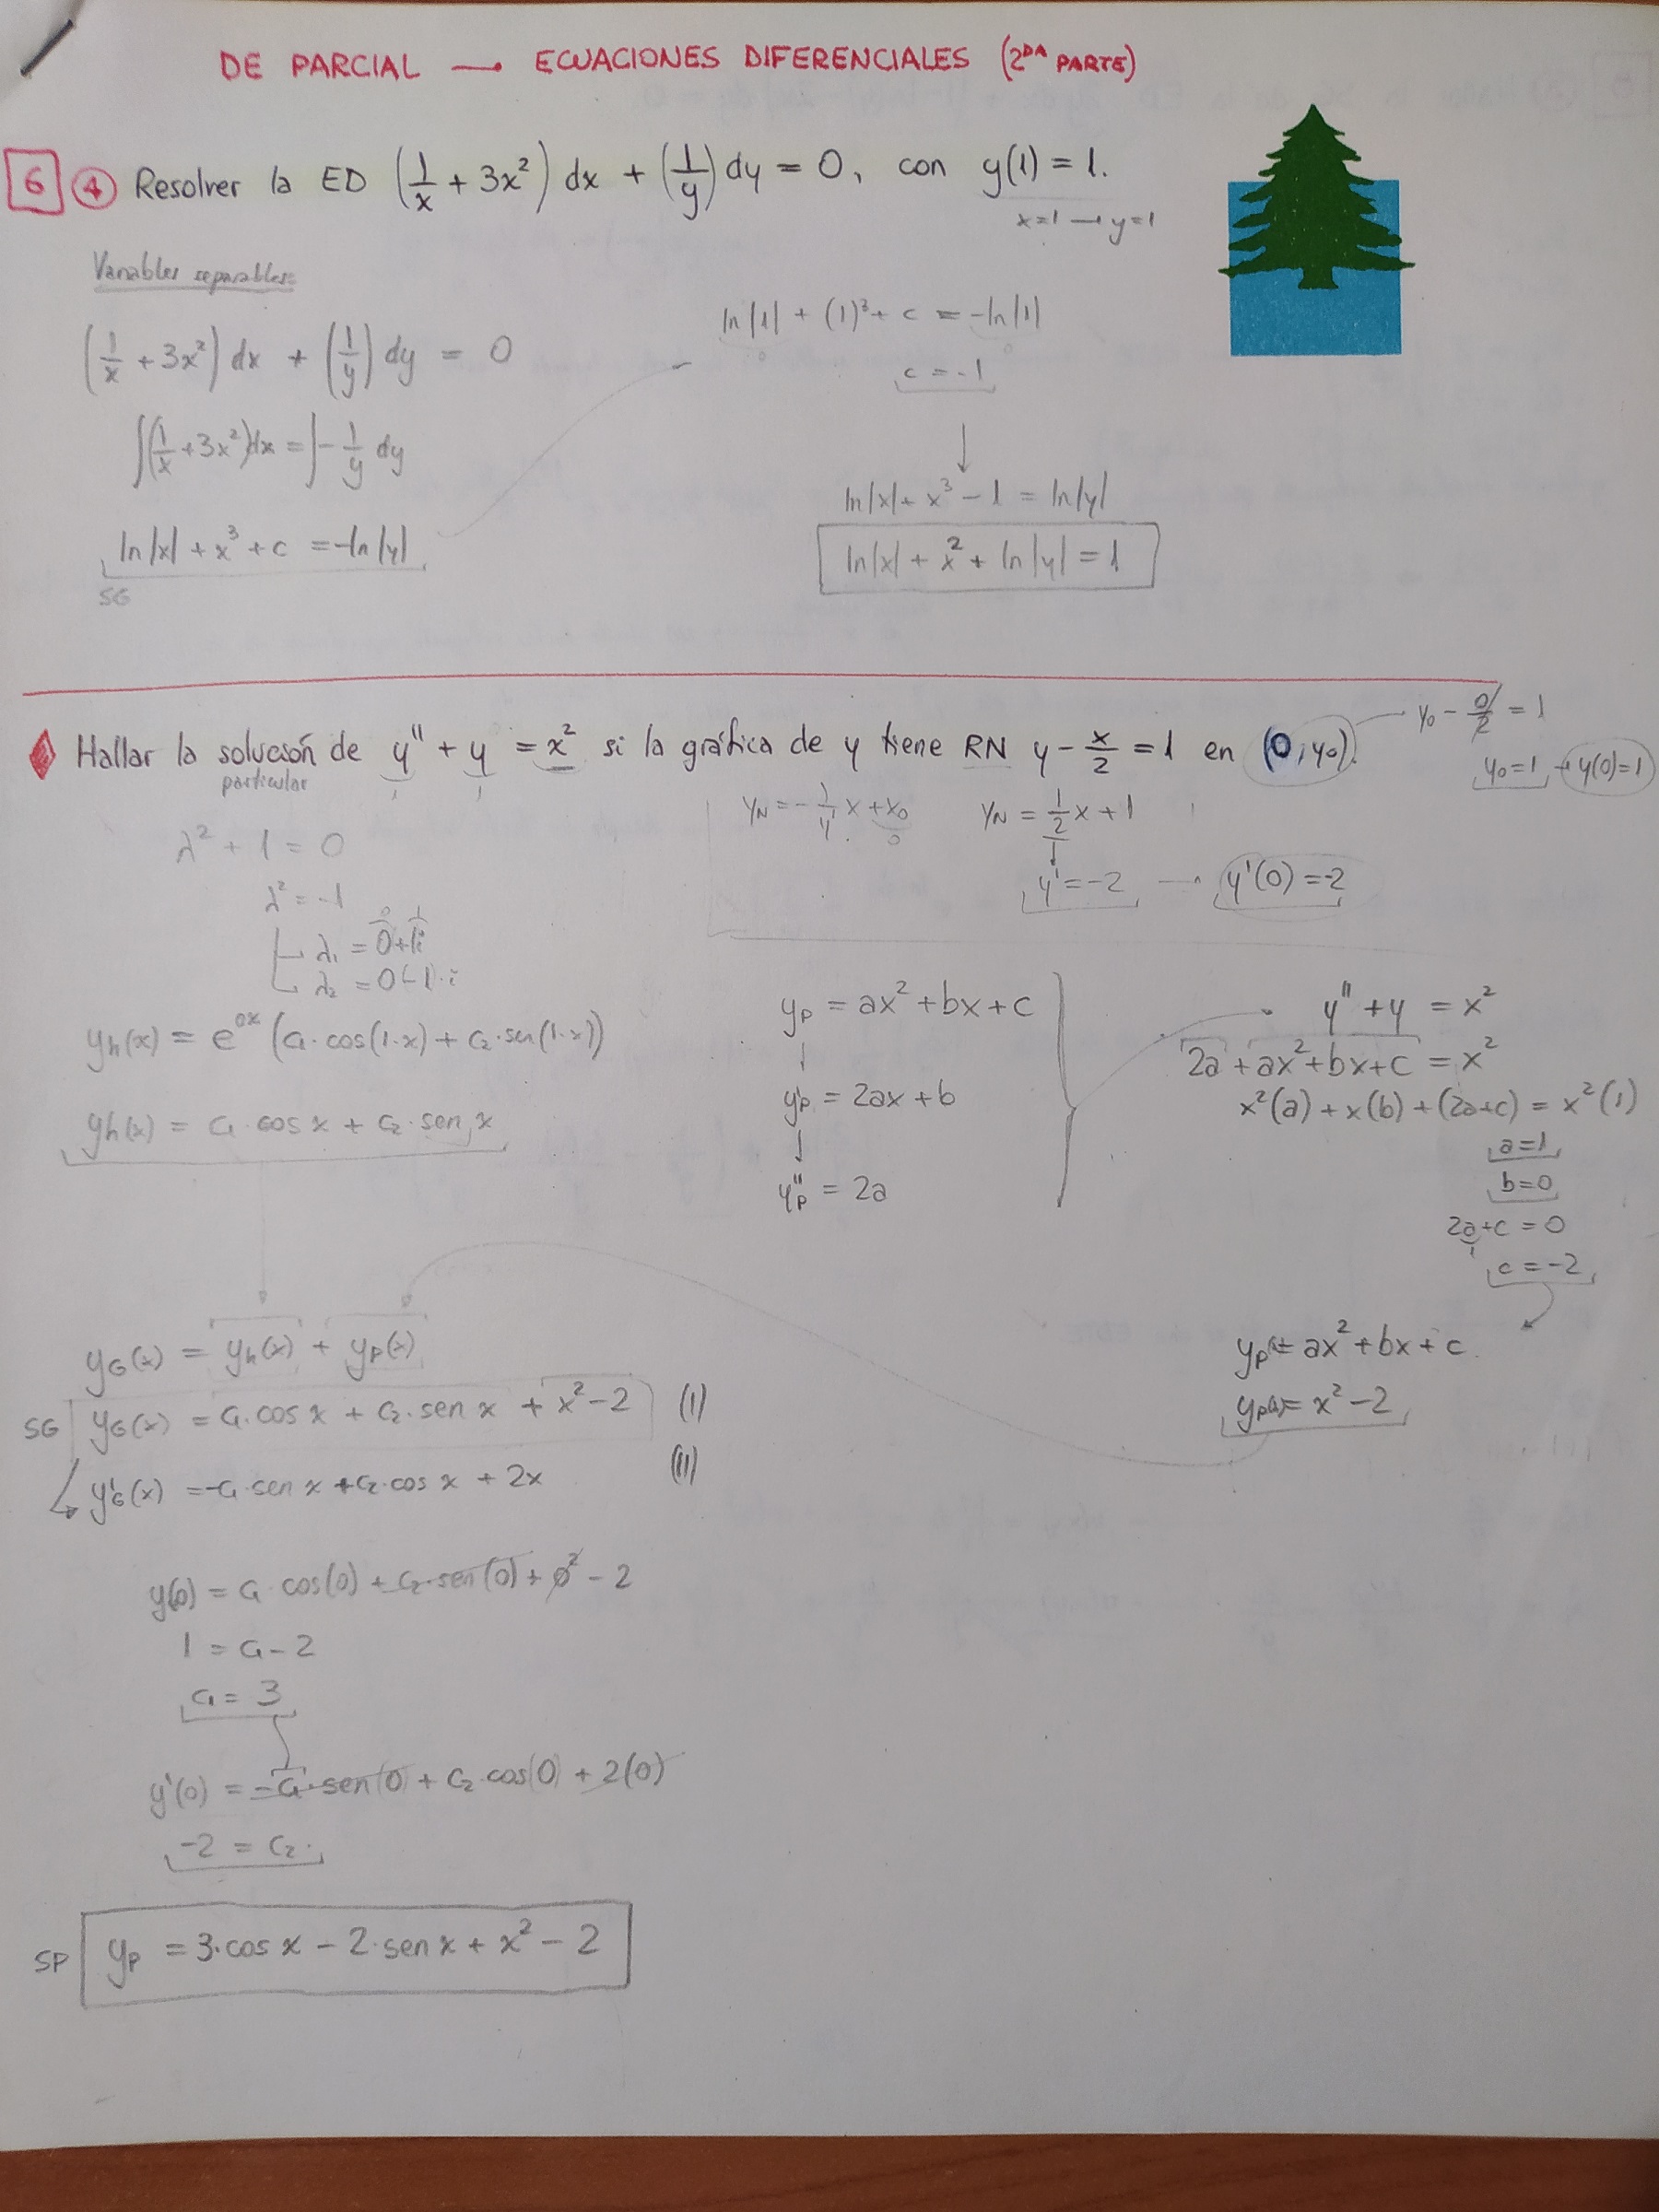 DE PARCIAL → ECUACIONES DIFERENCIALES (2DA PARTE)
6 4 Resolver la ED (1/x + 3x²) dx + (1/y) dy = 0, con y(1) = 1.
x=1 → y=1
Variables separables
(1/x + 3x²) dx + (1/y) dy = 0
∫(1/x + 3x²)dx = ∫ - 1/y dy
ln|x| + x³ + c = -ln|y|
SG
ln|1| + (1)³ + c = -ln|1|
0 0
c = -1
↓
ln|x| + x³ - 1 = ln|y|
ln|x| + x² + ln|y| = 1
Hallar la solución de y'' + y = x² si la gráfica de y tiene RN y - x/2 = 1 en (0, y0).
particular
y0 - 0/2 = 1
y0 = 1 → y(0)=1
yN = - 1/y' x + x0
0
yN = 1/2 x + 1
↓
y' = -2 → y'(0) = -2
λ² + 1 = 0
λ² = -1
λ1 = 0+1i
λ2 = 0-1·i
yh(x) = e^0x (C1·cos(1·x) + C2·sen(1·x))
yh(x) = C1·cos x + C2·sen x
yp = ax² + bx + c
↓
y'p = 2ax + b
↓
y''p = 2a
y'' + y = x²
2a + ax² + bx + c = x²
x²(a) + x(b) + (2a+c) = x²(1)
a=1
b=0
2a+c = 0
1
c = -2
yp(x) = ax² + bx + c.
yp(x) = x² - 2
yG(x) = yh(x) + yp(x)
SG yG(x) = C1·cos x + C2·sen x + x² - 2 (I)
y'G(x) = -C1·sen x + C2·cos x + 2x (II)
y(0) = C1·cos(0) + C2·sen(0) + 0² - 2
1 = C1 - 2
C1 = 3
y'(0) = -C1·sen(0) + C2·cos(0) + 2(0)
-2 = C2.
SP yp = 3·cos x - 2·sen x + x² - 2